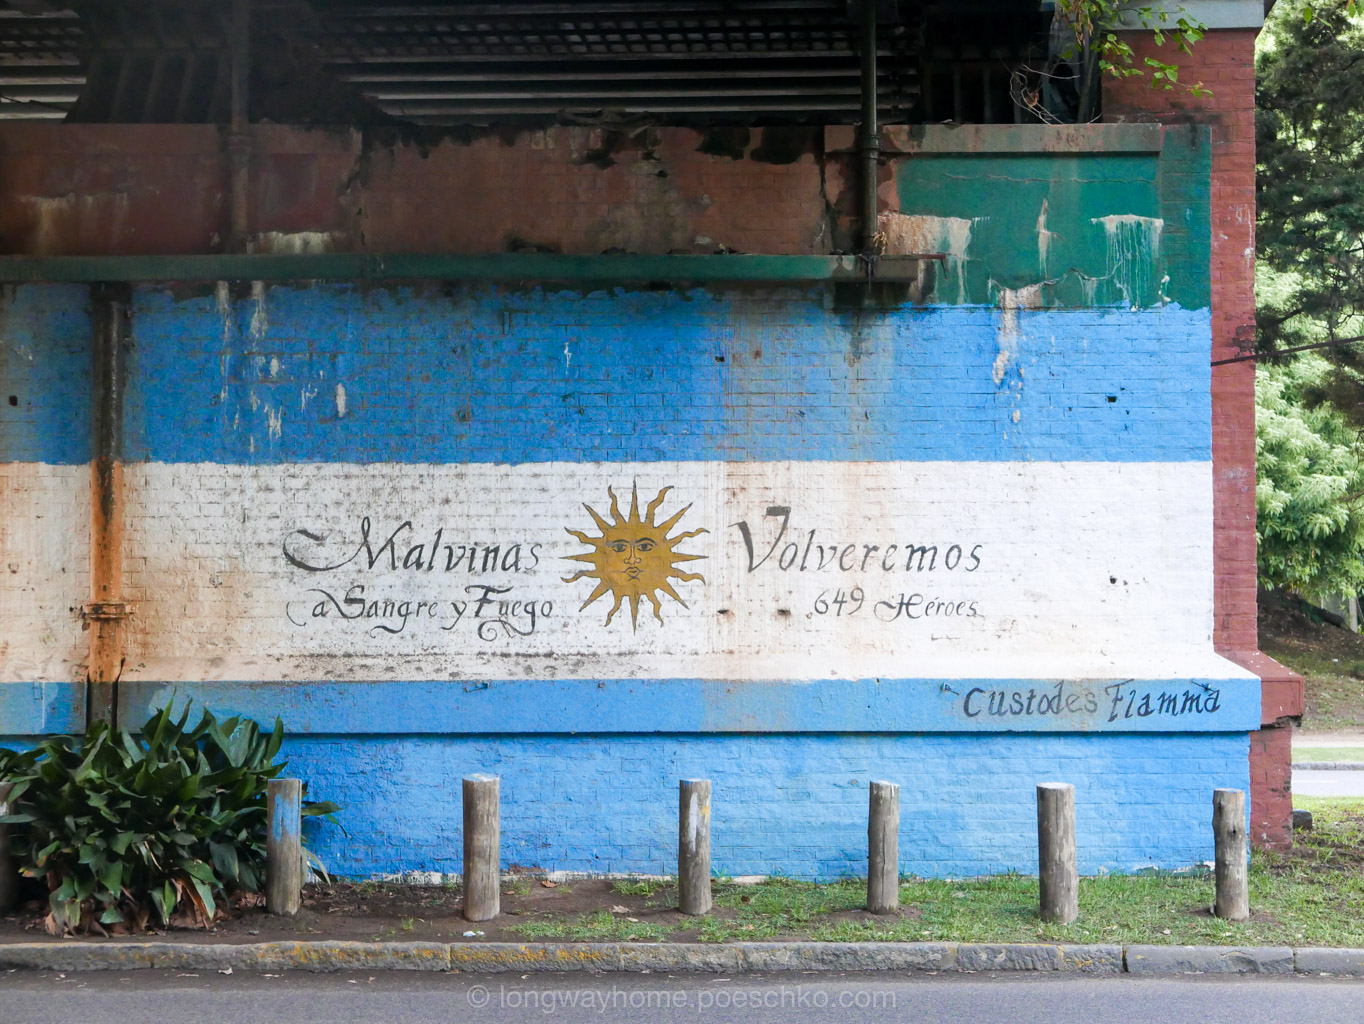 Malvinas Volveremos
a Sangre y Fuego 649 Héroes
Custodes Flamma
© longwayhome.poeschko.com